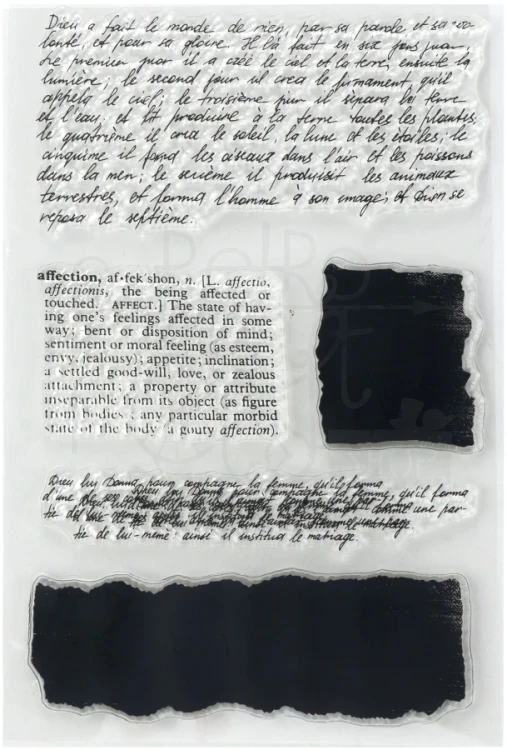 Dieu a fait le monde de rien, par sa parole et sa vo-
lonté, et pour sa gloire. Il l'a fait en six fons jour,
Le premier jour il a créé le ciel et la terre, ensuite la
lumière; le second jour il crea le firmament qu'il
appela le ciel; le troisième jour il sépara la terre
et l'eau, et fit produire à la terre toutes les plantes;
le quatrième il crea le soleil, la lune et les étoiles; le
cinquime il forma les oiseaux dans l'air et les poissons
dans la mer; le sixième il produisit les animaux
terrestres, et forma l'homme à son image; et Dieu se
reposa le septième.
affection, af·fek´shon, n. [L. affectio,
affectionis, the being affected or
touched. AFFECT.] The state of hav-
ing one's feelings affected in some
way; bent or disposition of mind;
sentiment or moral feeling (as esteem,
envy, jealousy); appetite; inclination;
a settled good-will, love, or zealous
attachment; a property or attribute
inseparable from its object (as figure
from bodies); any particular morbid
state of the body (a gouty affection).
Dieu lui donna pour compagne la femme, qu'il forma
d'une pour compagne la femme, qu'il forma
une par-
tie de lui-même: ainsi il institua le mariage.